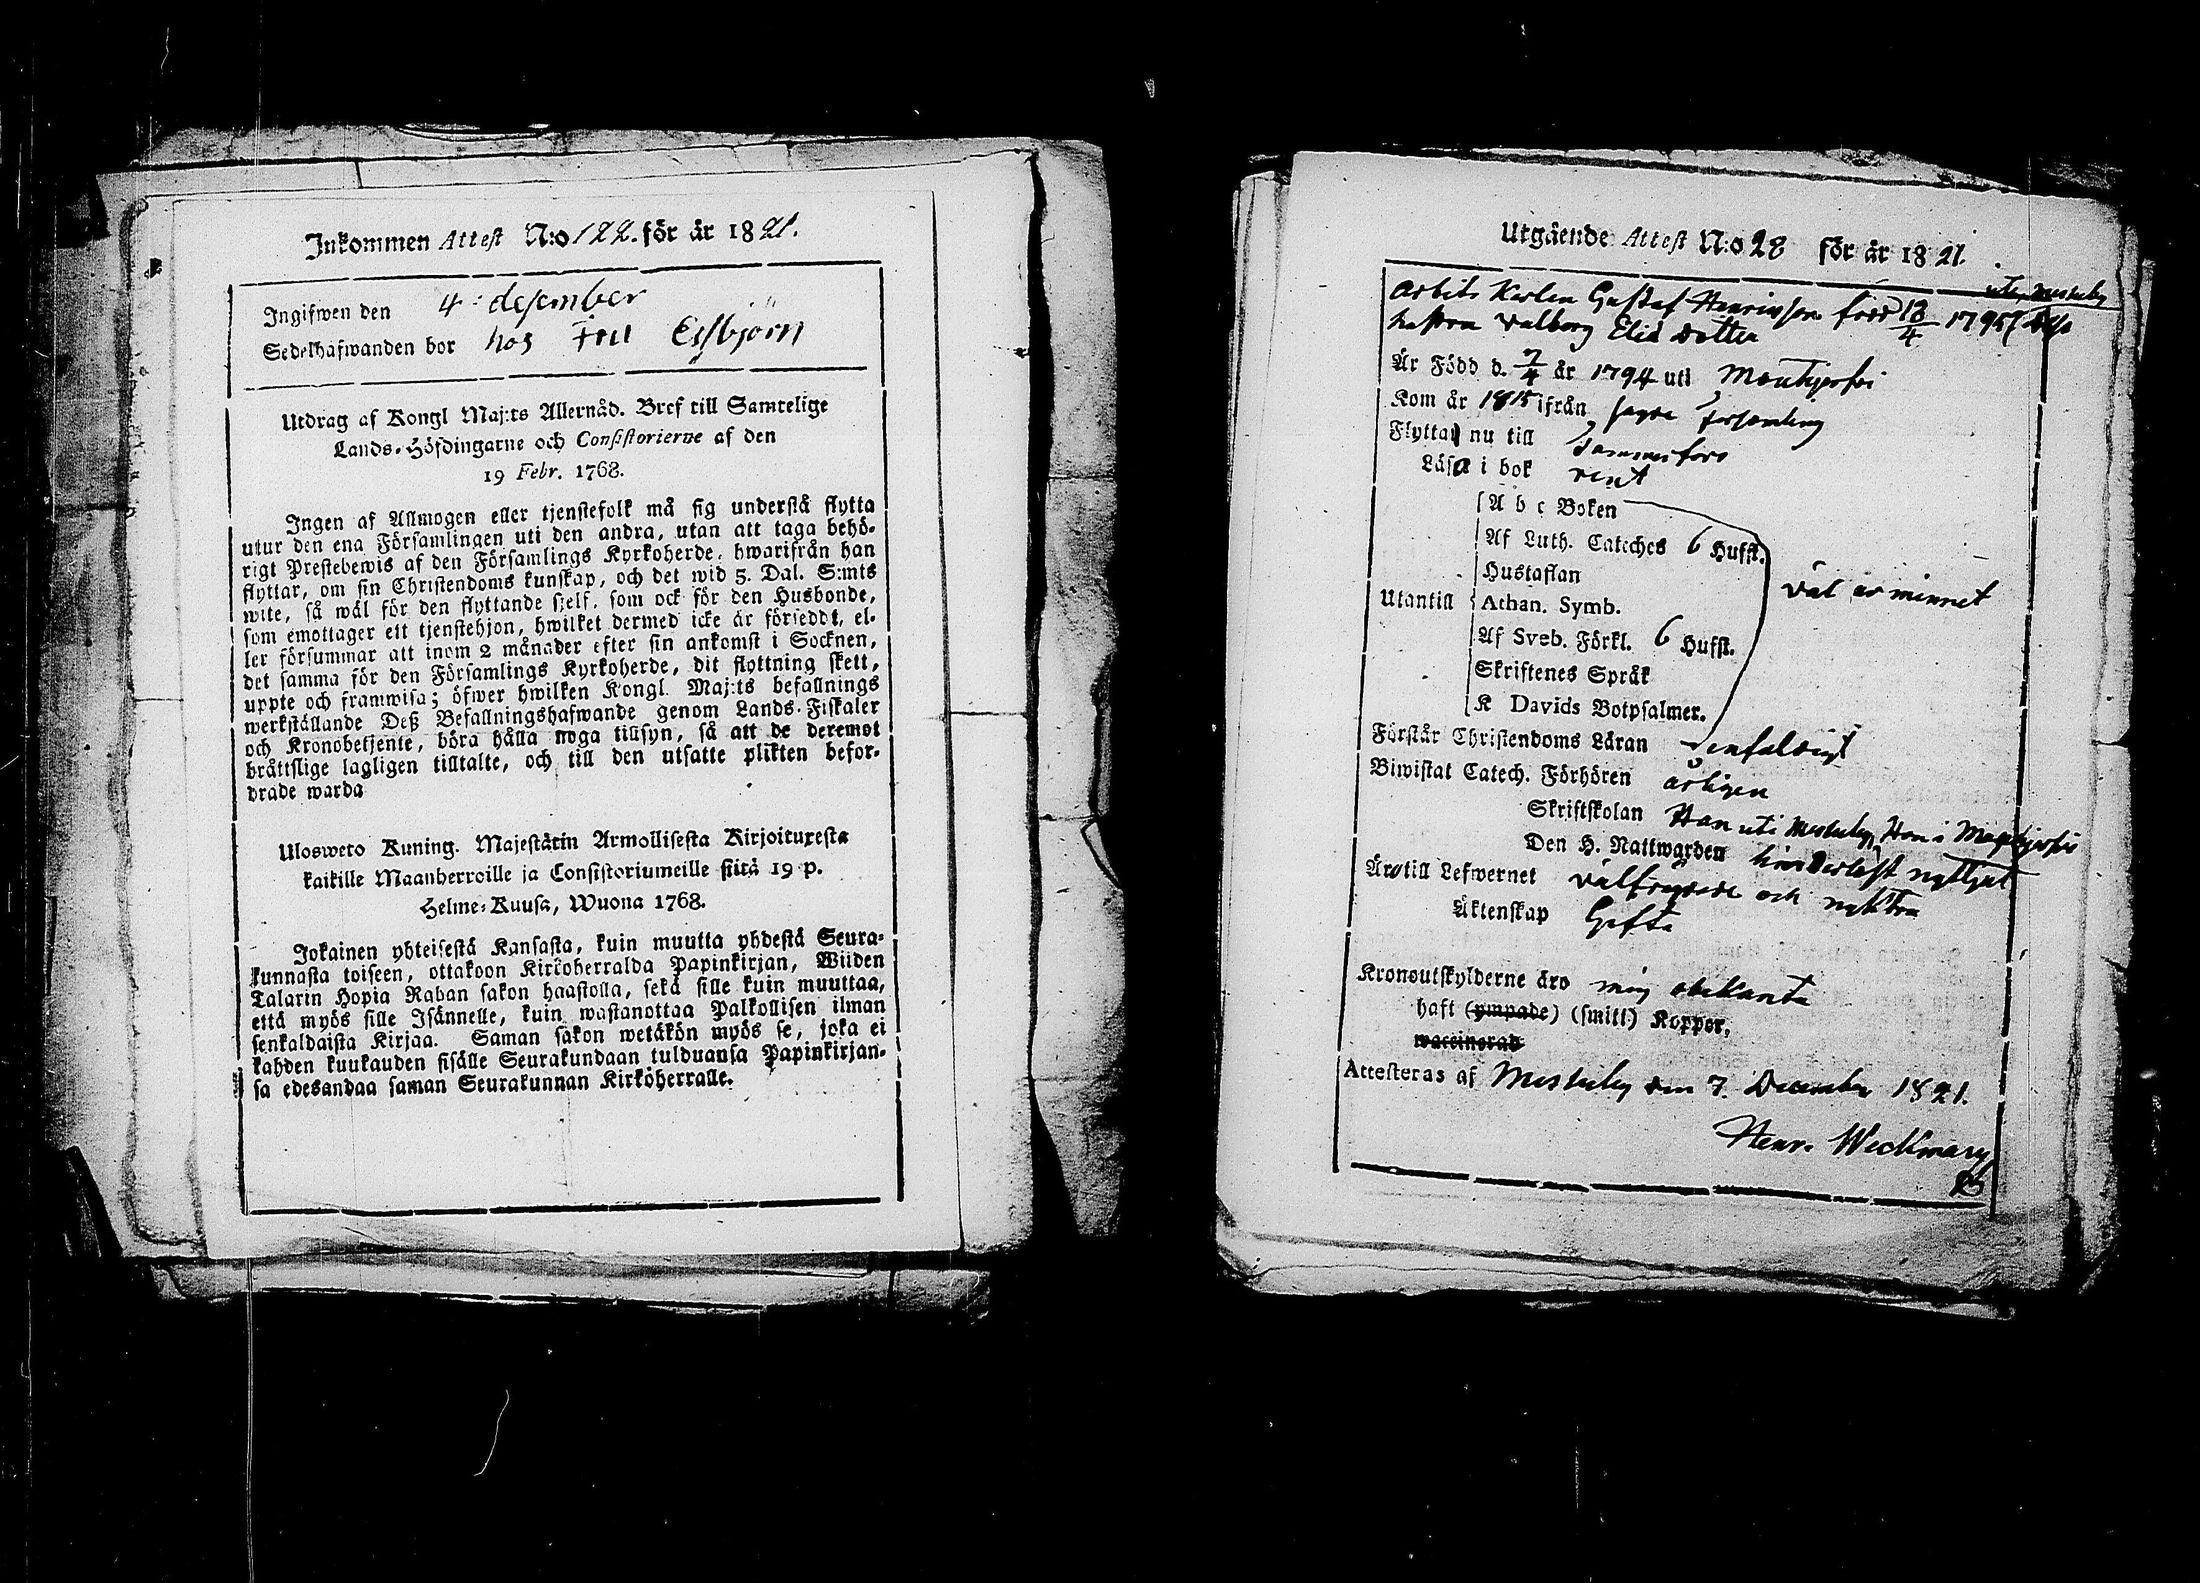 Inkommen Attest N:o 122. för år 1821.
Ingifwen den 4 desember
Sedelhafwanden bor hos Fru Eisbjörn
Utdrag af Kongl Maj:ts Allernåd. Bref till Samtelige
Lands-Höfdingarne och Consistorierne af den
19 Febr. 1768.
Ingen af Allmogen eller tjenstefolk må sig understå flytta
utur den ena Församlingen uti den andra, utan att taga behö-
rigt Prestebewis af den Församlings Kyrkoherde, hwarifrån han
flyttar, om sin Christendoms kunskap, och det wid 5. Dal. S:mts
wite, så wäl för den flyttande sjelf, som ock för den Husbonde,
som emottager ett tjenstehjon, hwilket dermed icke är försedt, el-
ler försummar att inom 2 månader efter sin ankomst i Socknen,
det samma för den Församlings Kyrkoherde, dit flyttning skett,
uppte och framwisa; öfwer hwilken Kongl. Maj:ts befallnings
werkställande Deß Befallningshafwande genom Lands-Fiskaler
och Kronobetjente, böra hålla noga tillsyn, så att de deremot
bråttslige lagligen tilltalte, och till den utsatte plikten befor-
drade warda
Ulosweto Kuning. Majestätin Armollisesta Kirjoituxesta
kaikille Maanherroille ja Consistoriumeille siitä 19 p.
Helme-Kuusa, Wuona 1768.
Jokainen yhteisestä Kansasta, kuin muutta yhdestä Seura-
kunnasta toiseen, ottakoon Kirkoherralda Papinkirjan, Wiiden
Talarin Hopia Rahan sakon haastolla, sekä sille kuin muuttaa,
että myös sille Isännelle, kuin wastanottaa Palkollisen ilman
senkaldaista Kirjaa. Saman sakon wetäkön myös se, joka ei
kahden kuukauden sisälle Seurakundaan tulduansa Papinkirjan-
sa edesandaa saman Seurakunnan Kirköherralle.
Utgående Attest N:o 28 för år 1821.
Arbets Karlen Gustaf Henricsson född 13/4 1795
hustru Valborg Elis dotter
Är Född d. 7/4 år 1794 uti Mäntyharju
Kom år 1815 ifrån sagde församling
Flytta nu till
Läsa i bok rent
A b c Boken
Af Luth. Cateches 6 Hufst.
Hustaflan
Utantill Athan. Symb.
väl ur minnet
Af Sveb. Förkl. 6 Hufst.
Skriftenes Språk
K Davids Botpsalmer.
Förstår Christendoms Läran enfaldigt
Biwistat Catech. Förhören årligen
Skriftskolan Han uti Mörskom, Hon i
Den H. Nattwarden hinderlöst nyttjat
Äro till Lefwernet välfrejdade och nyktra
Äktenskap Gifta
Kronoutskylderne äro mig obekanta
haft (ympade) (smitt) Koppor,
waccinerad
Attesteras af den 7. December 1821.
Henr. Weckman